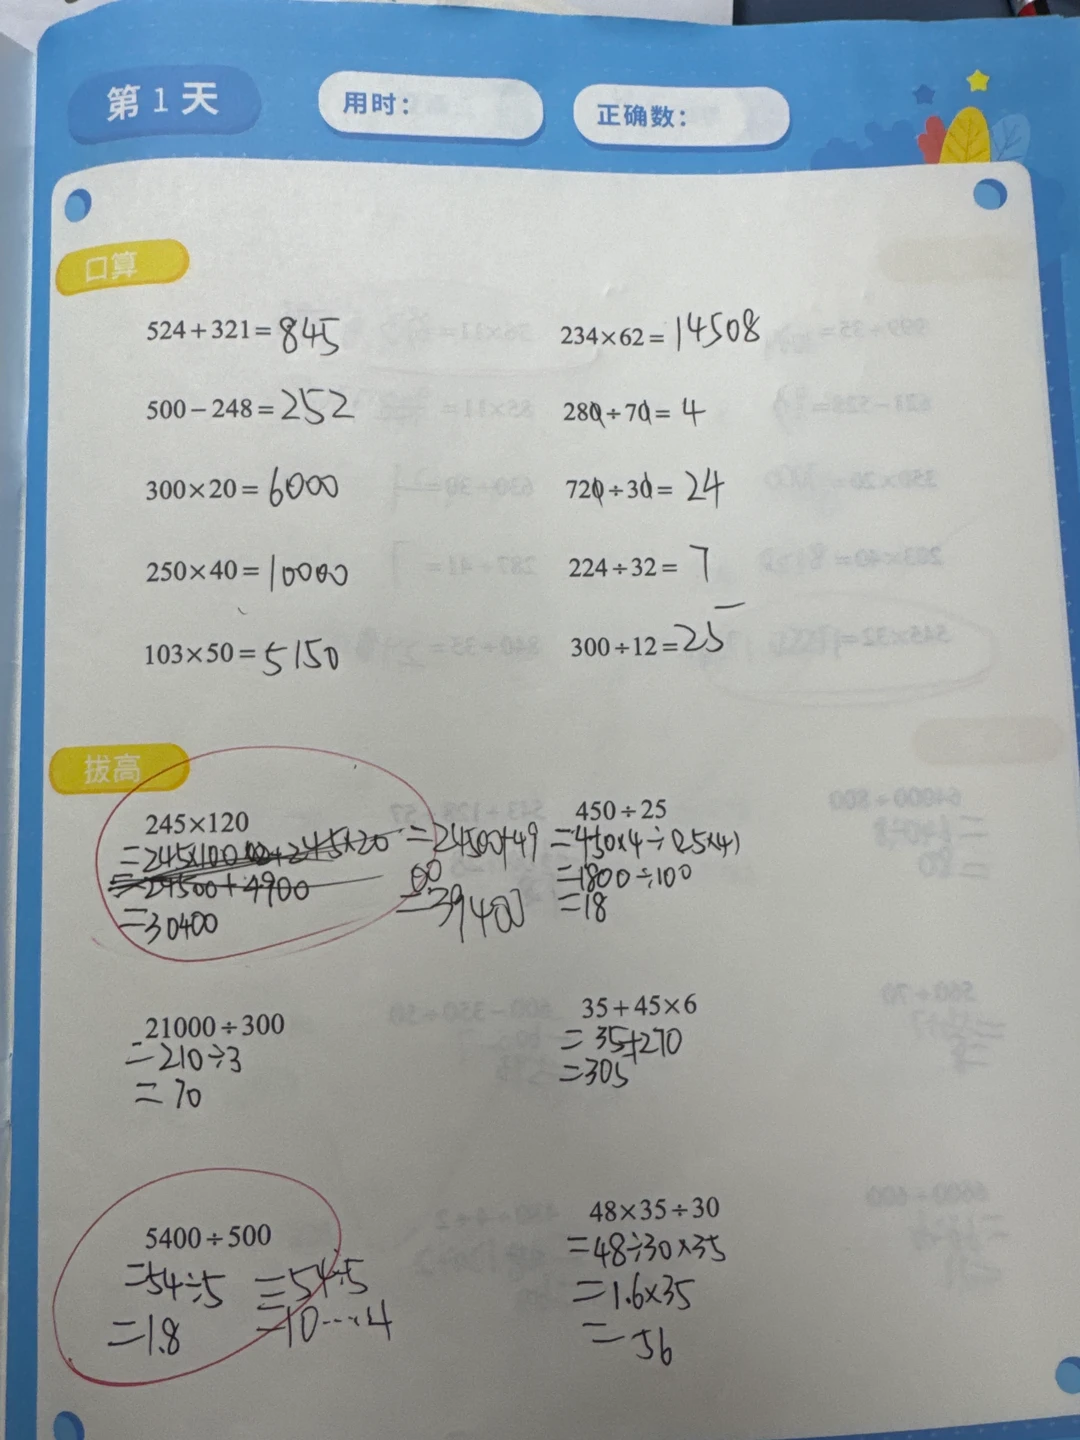 第1天
用时：
正确数：
口算
524+321=845
234×62=14508
500-248=252
280÷70=4
300×20=6000
720÷30=24
250×40=10000
224÷32=7
103×50=5150
300÷12=25
拔高
245×120
=245×100+245×20
=24500+4900
=30400
=24500+49
00
=39400
450÷25
=450×4÷(25×4)
=1800÷100
=18
21000÷300
=210÷3
=70
35+45×6
=35+270
=305
5400÷500
=54÷5
=1.8
=54÷5
=10……4
48×35÷30
=48÷30×35
=1.6×35
=56